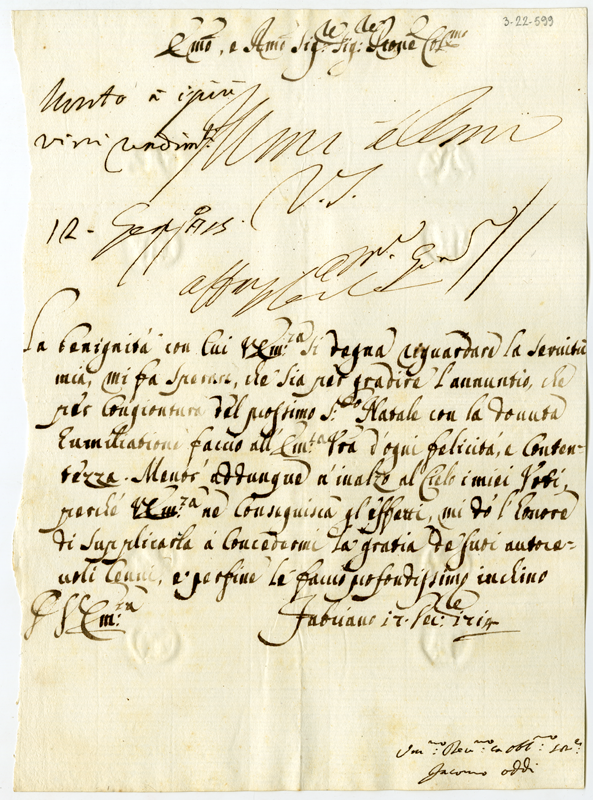 3-22-599
Emo, e Rmo Sigre Sigre Prone Colmo
Monto à
vivi
12 - Gen 1715.
V. S.
La benignità con cui VEmza si degna reguardare la servitù
mia, mi fa sperare, che sia per gradire l'annuntio, che
per congiontura del prossimo Smo Natale con la dovuta
humiliatione faccio all'Emza Vra d'ogni felicità, e conten-
tezza. Mentr' addunque n'inalzo al Cielo i miei Voti,
perche VEmza ne conseguisca gl'effetti, mi dò l'honore
di supplicarla à concedermi la gratia de suoi autore-
uoli Cenni, e perfine le faccio profondissimo inchino
Di VEmza
Fabriano 17. Xcembre 1714
Umo Devmo ed obbmo sre
Giacomo Oddi